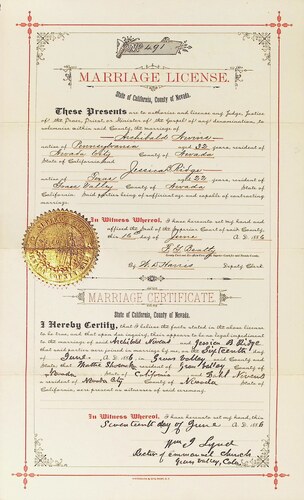 No 491
MARRIAGE LICENSE.
State of California, County of Nevada.
These Presents are to authorize and license any Judge, Justice
of the Peace, Priest, or Minister of the Gospel of any denomination, to
solemnize within said County, the marriage of
Archibald
native of Pennsylvania aged 32 years, resident of
Nevada City County of Nevada
State of California and
Jessica B Ridge
native of aged 22 years, resident of
Grass Valley County of Nevada State of
California. Said parties being of sufficient age and capable of contracting
marriage.
In Witness Whereof, I have hereunto set my hand and
affixed the Seal of the Superior Court of said County,
this 16th day of June A.D. 1886
By Deputy Clerk.
MARRIAGE CERTIFICATE
State of California, County of Nevada.
I Hereby Certify, that I believe the facts stated in the above license
to be true, and that upon due inquiry, there appears to be no legal impediment
to the marriage of said Archibald and Jessica B Ridge
that said parties were joined in marriage by me, on the Sixteenth day of
June A.D. 1886, in Grass Valley said County and
State; that Mattie a resident of Grass Valley County of
Nevada State of California and
a resident of Nevada City County of Nevada State of
California, were present as witnesses of said ceremony.
In Witness Whereof, I have hereunto set my hand, this
Seventeenth day of June A.D. 1886
Rector of Emmanuel Church
Grass Valley, Cala